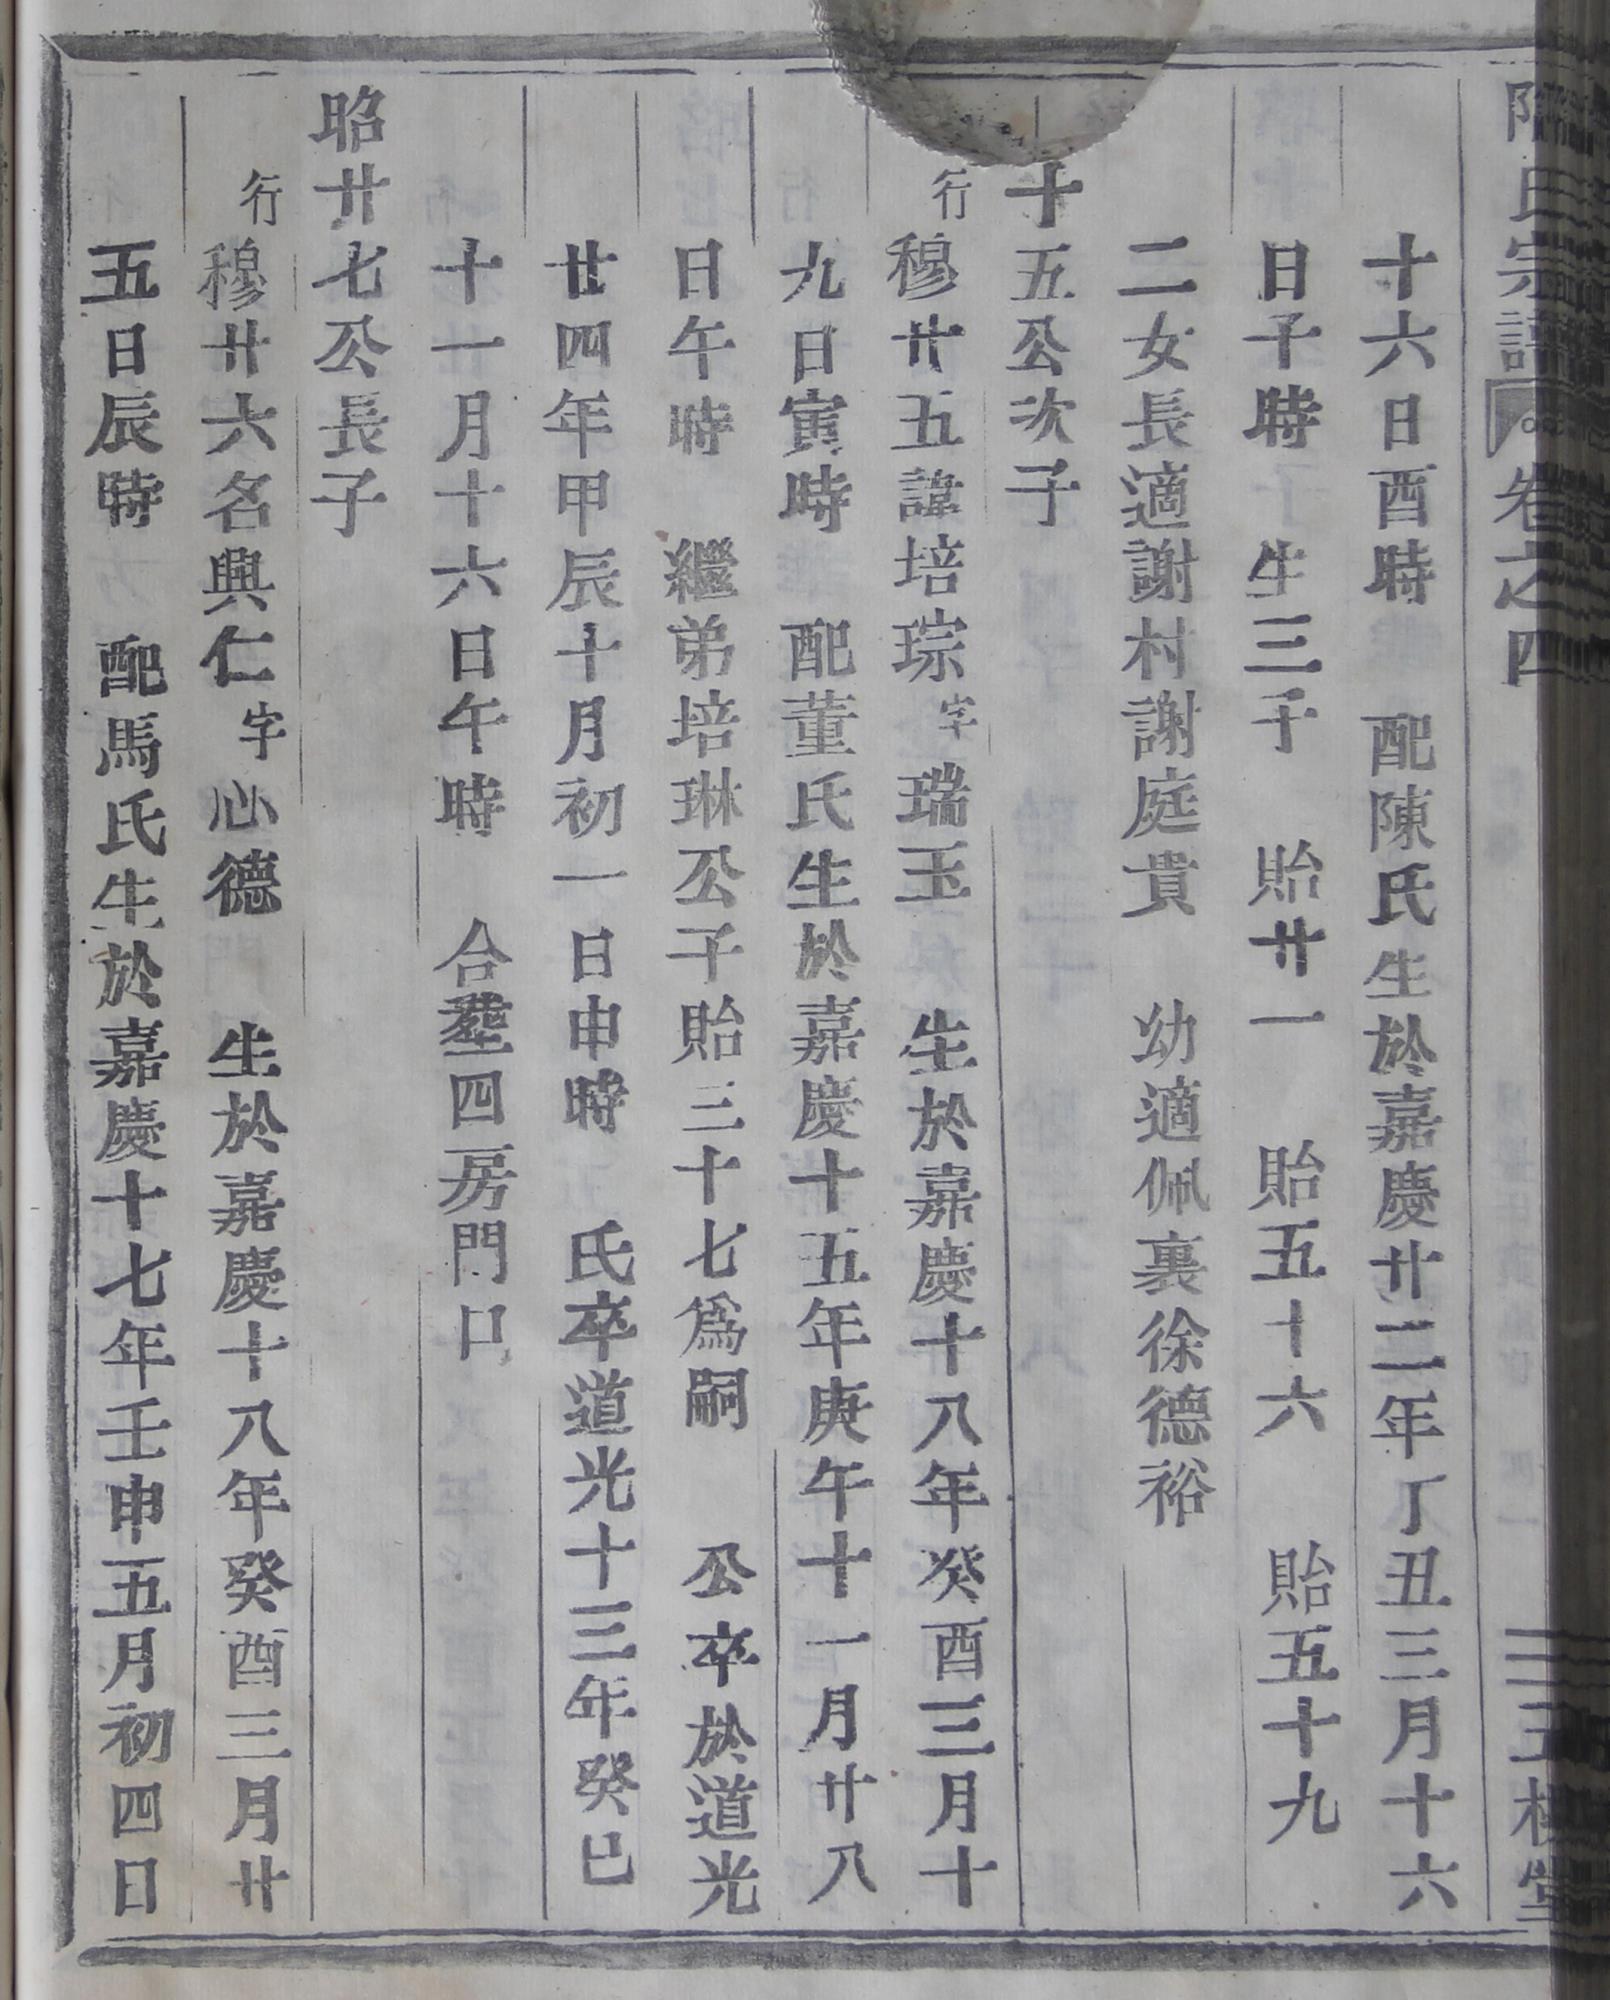 氏宗譜 卷之四 三五桂堂
十六日酉時 配陳氏生於嘉慶廿二年丁丑三月十六
日子時 生三子 貽廿一 貽五十六 貽五十九
二女長適謝村謝庭貴 幼適佩裏徐德裕
十五公次子
行穆廿五諱培琮字瑞玉 生於嘉慶十八年癸酉三月十
九日寅時 配董氏生於嘉慶十五年庚午十一月廿八
日午時 繼弟培琳公子貽三十七爲嗣 公卒於道光
廿四年甲辰十月初一日申時 氏卒道光十三年癸巳
十一月十六日午時 合塟四房門口
昭廿七公長子
行穆廿六名興仁字心德 生於嘉慶十八年癸酉三月廿
五日辰時 配馬氏生於嘉慶十七年壬申五月初四日